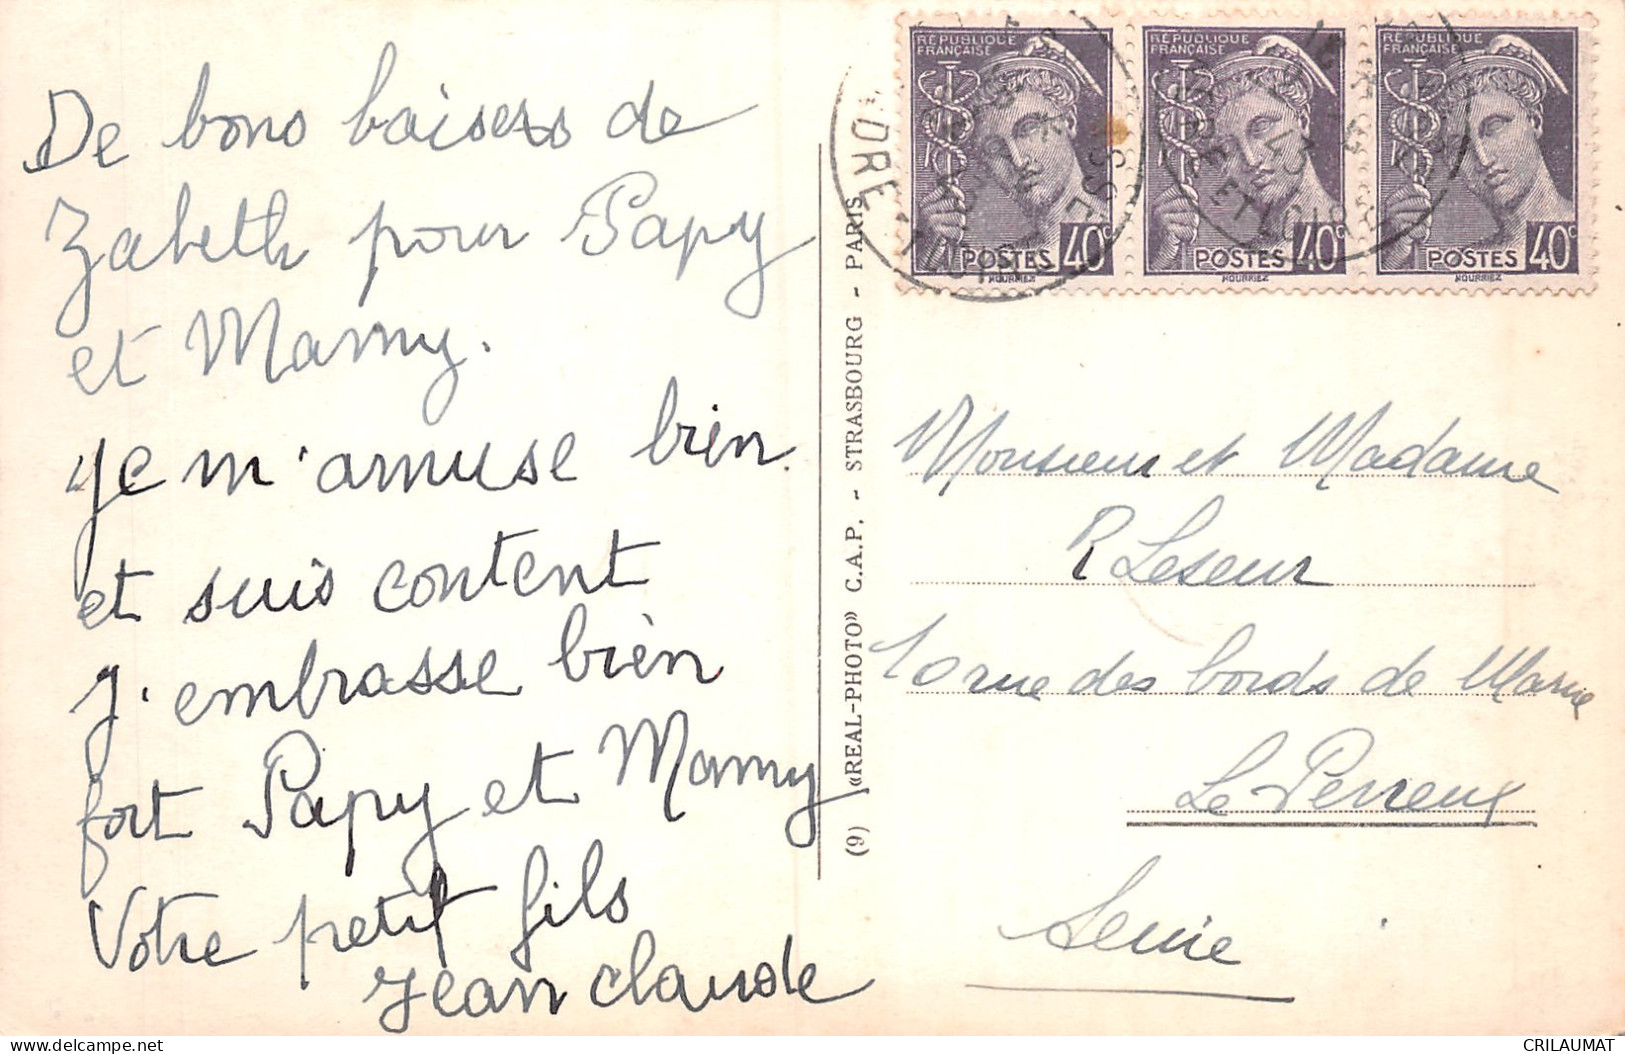 De bons baisers de
Zabeth pour Papy
et Mamy.
Je m'amuse bien.
et suis content
J'embrasse bien
fort Papy et Mamy
Votre petit fils
Jean claude
(9) «REAL-PHOTO» C.A.P. - STRASBOURG - PARIS
RÉPUBLIQUE
FRANÇAISE
POSTES 40c
MOURRIEZ
RÉPUBLIQUE
FRANÇAISE
POSTES 40c
MOURRIEZ
RÉPUBLIQUE
FRANÇAISE
POSTES 40c
MOURRIEZ
INDRE ET LOIRE
Monsieur et Madame
R Leseur
10 rue des bords de Marne
Le Perreux
Seine
CRILAUMAT
delcampe.net